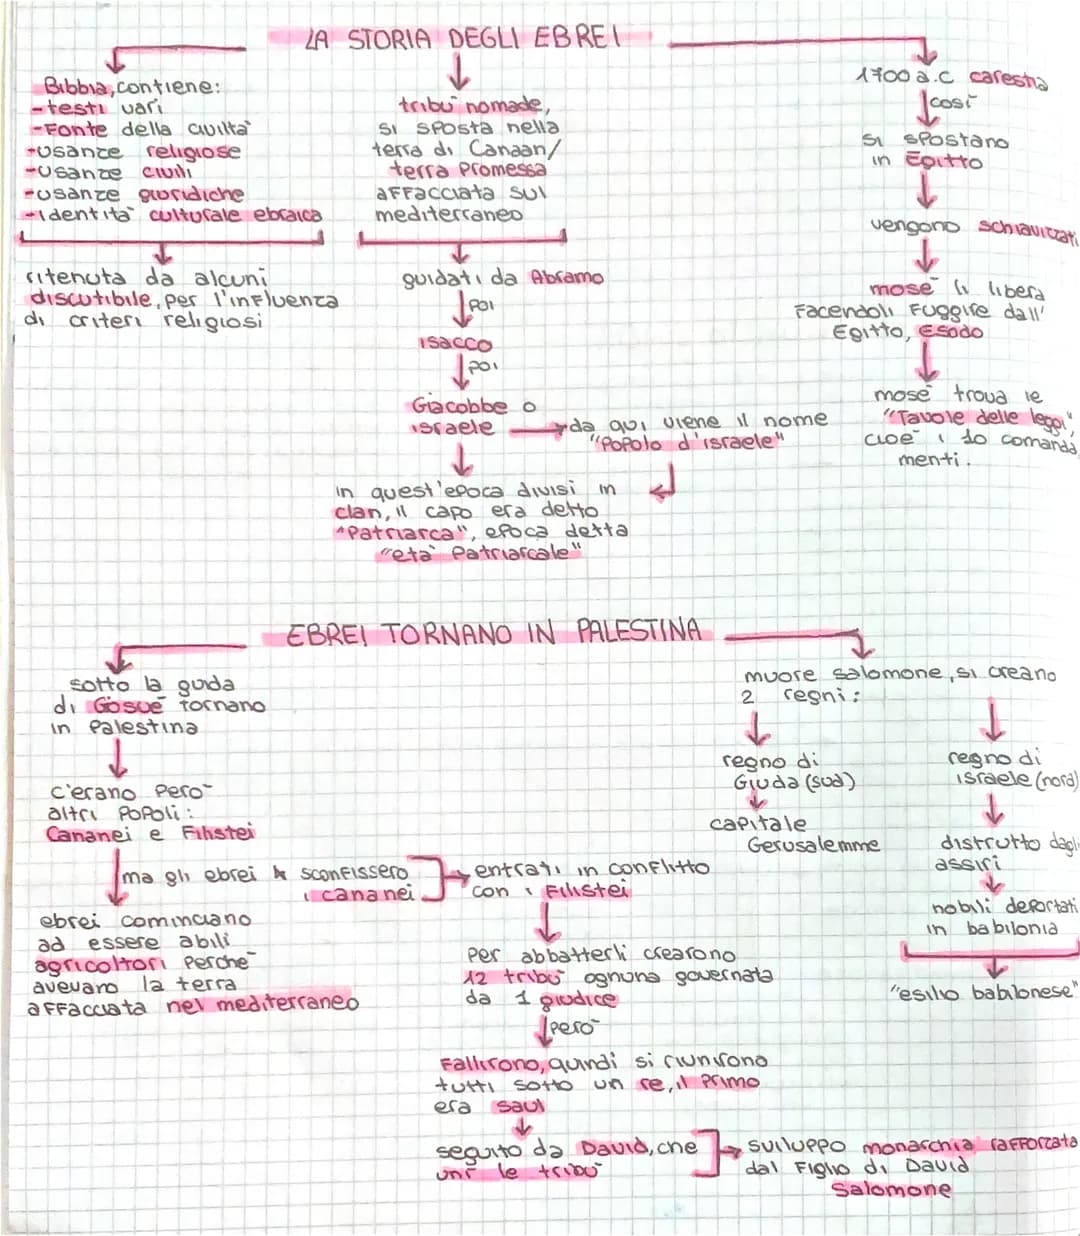 LA STORIA DEGLI EBREI
Bibbia, contiene:
-testi vari
-Fonte della civiltà
-usanze religiose
-usanze civili
-usanze giuridiche
-identità culturale ebraica
ritenuta da alcuni
discutibile, per l'influenza
di criteri religiosi
tribù nomade,
si sposta nella
terra di Canaan/
terra promessa
affacciata sul
mediterraneo
guidati da Abramo
poi
isacco
poi
Giacobbe o
israele
da qui viene il nome
"Popolo d'israele"
in quest'epoca divisi in
clan, il capo era detto
"Patriarca", epoca detta
"età Patriarcale"
1700 a.C carestia
così
si spostano
in Egitto
vengono schiavizzati
mosè li libera
Facendoli Fuggire dall'
Egitto, Esodo
mosè trova le
"Tavole delle leggi",
cioè i 10 comanda
menti.
EBREI TORNANO IN PALESTINA
sotto la guida
di Giosuè tornano
in Palestina
c'erano Però
altri Popoli:
Cananei e Filistei
ma gli ebrei sconfissero
i cananei
ebrei cominciano
ad essere abili
agricoltori Perchè
avevano la terra
affacciata nel mediterraneo
entrati in conflitto
con i Filistei
Per abbatterli crearono
12 tribù ognuna governata
da 1 giudice
però
Fallirono, quindi si riunirono
tutti sotto un re, il Primo
era Saul
seguito da David, che
unì le tribù
sviluppo monarchia rafforzata
dal Figlio di David
Salomone
muore salomone, si creano
2 regni:
regno di
Giuda (sud)
capitale
Gerusalemme
regno di
israele (nord)
distrutto dagli
assiri
nobili deportati
in babilonia
"esilio babilonese"